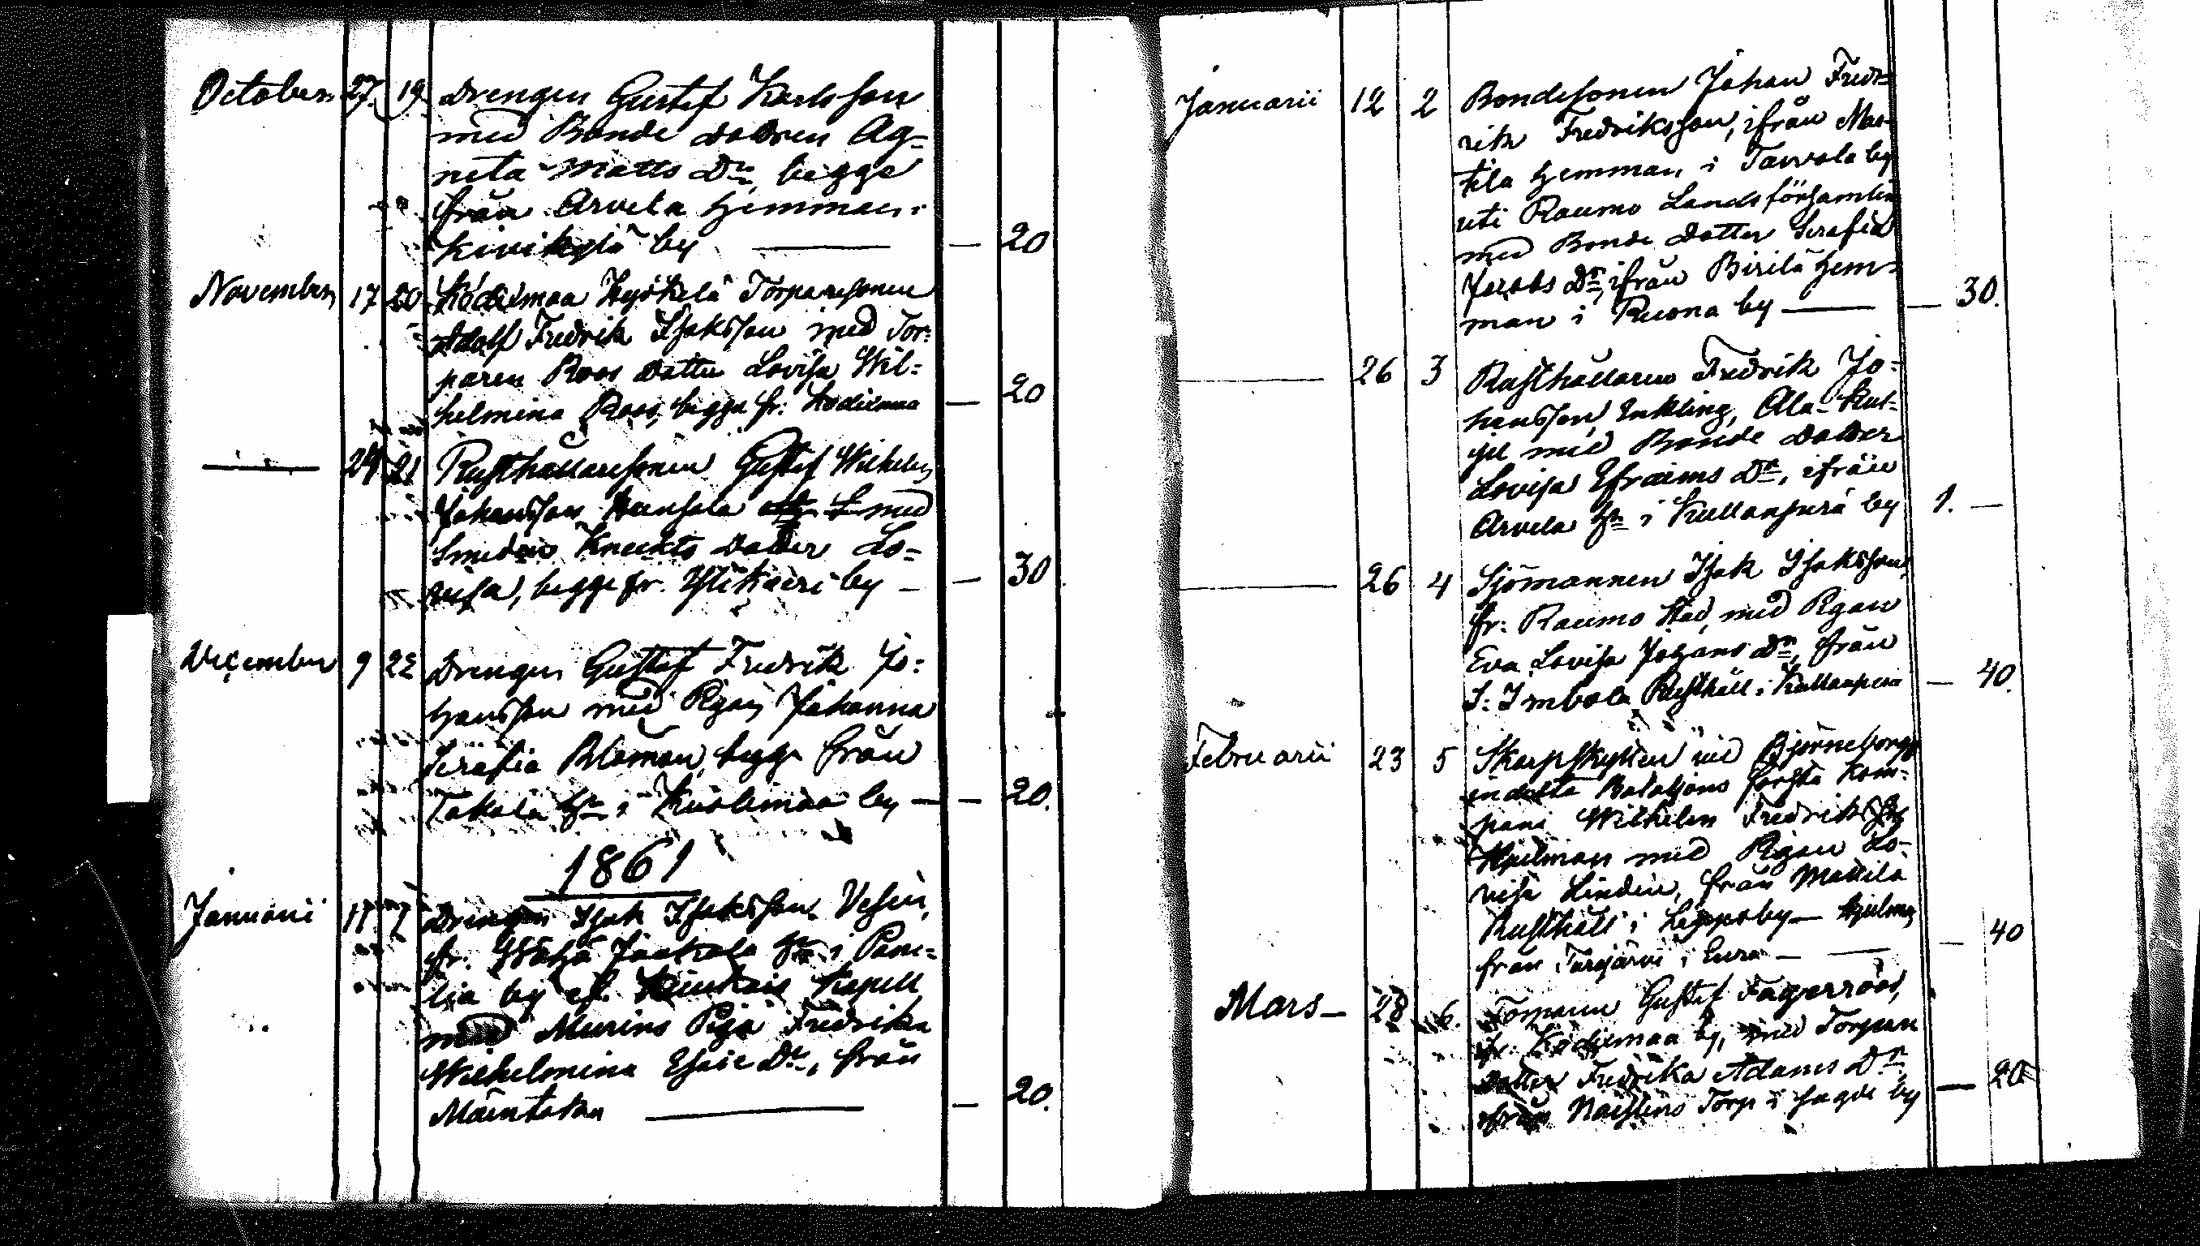 October 27. 19. Drengen Gustaf Karlsson
med Bonde dottren Ag-
neta Matts Dr. begge
från Arvela Hemman i
Kivikylä by — 20
November 17 20 Kodixmaa Torparesonen
Adolf Fredrik Isaksson med Tor-
paren Roos dotter Lovisa Wil-
helmina Roos, begge fr: Kodixmaa — 20
— 24 21 Rusthållaresonen Gustaf Wilhelm
Johansson med
Smeden Knechts Dotter Lo-
visa, begge fr. by — 30
December 9 22 Drengen Gustaf Fredrik Jo-
hansson med Pigan Johanna
Serafia Bloman, begge från
Takala Hn i by — 20.
1861
Januarii 17 1 Drengen Isak Isaksson
fr. Jaakola Hn i Pane-
lia by af Kiukais Kapell
med Murins Piga Fredrika
Wilhelmina Esaie Dr., från
— 20.
Januarii 12 2 Bondesonen Johan Fred-
rik Fredriksson, ifrån Mat-
tila Hemman, i Tarvola by
uti Raumo Landsförsamlin
med Bonde Dotter Serafia
Jacobs Dr, ifrån Hem-
man i Ruona by — 30.
— 26 3 Rusthållaren Fredrik Jo-
hansson Inkling, Ala-
med Bonde Dotter
Lovisa Efraims Dr, ifrån
Arvela Hn i Kullanperä by 1. —
— 26 4 Sjömannen Isak Isaksson,
fr: Raumo Stad, med Pigan
Eva Lovisa Johans Dr, från
I: Imbola Rusthåll i Kullanperä — 40.
Februarii 23 5 Skarpskytten vid Björneborgs
indelta Bataljons första Kom-
pani Wilhelm Fredriksson
Hjelman med Pigan Lo-
visa Linden, från Mattila
Rusthåll i — Hjelman
från i Eura — — 40
Mars — 28 6. Gustaf Fagerroos,
fr. Kodixmaa by, med Torpare
dotter Fredrika Adams Dr,
ifrån Torp i by — 20